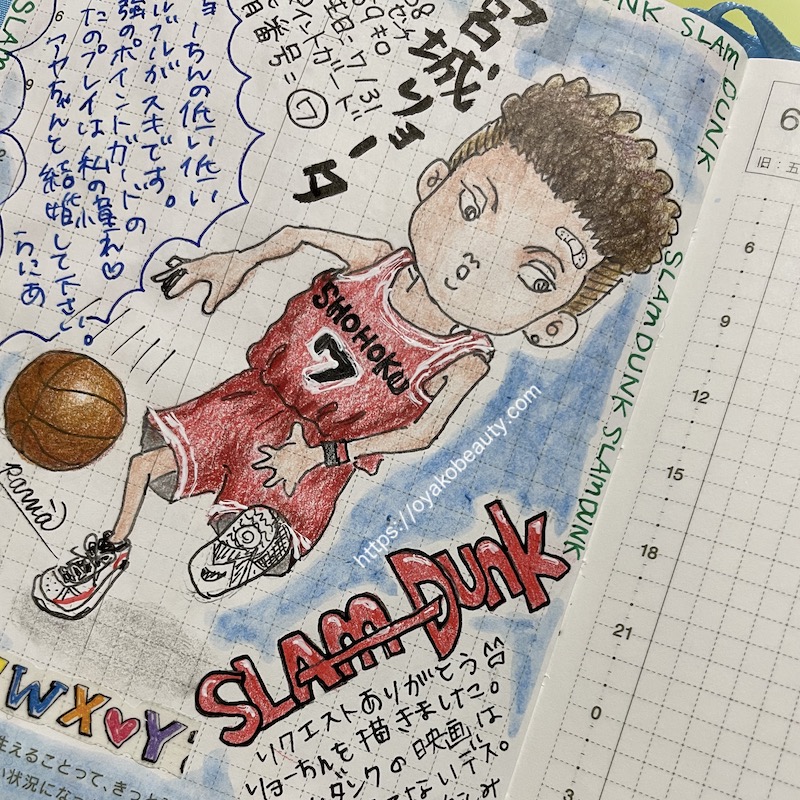 SLAM
DUNK SLAM DUNK
SLAM DUNK SLAMDUNK
宮城リョータ
日: 7/31
イントガード
番号=⑦
ョーちんの低い低い
ルブルがスキです。
強のポイントガードの
たのプレイは私の憧れ♡
アヤちゃんと結婚して下さい。
らにあ
SHOHOKU
7
https://oyakobeauty.com
SLAM DUNK
リクエストありがとう
リョーちんを描きました。
ダンクの映画は
てないデス。
W X ♥ Y
えることって、きっと
い状況になっ
6
旧：五
6
9
12
15
18
21
0
3